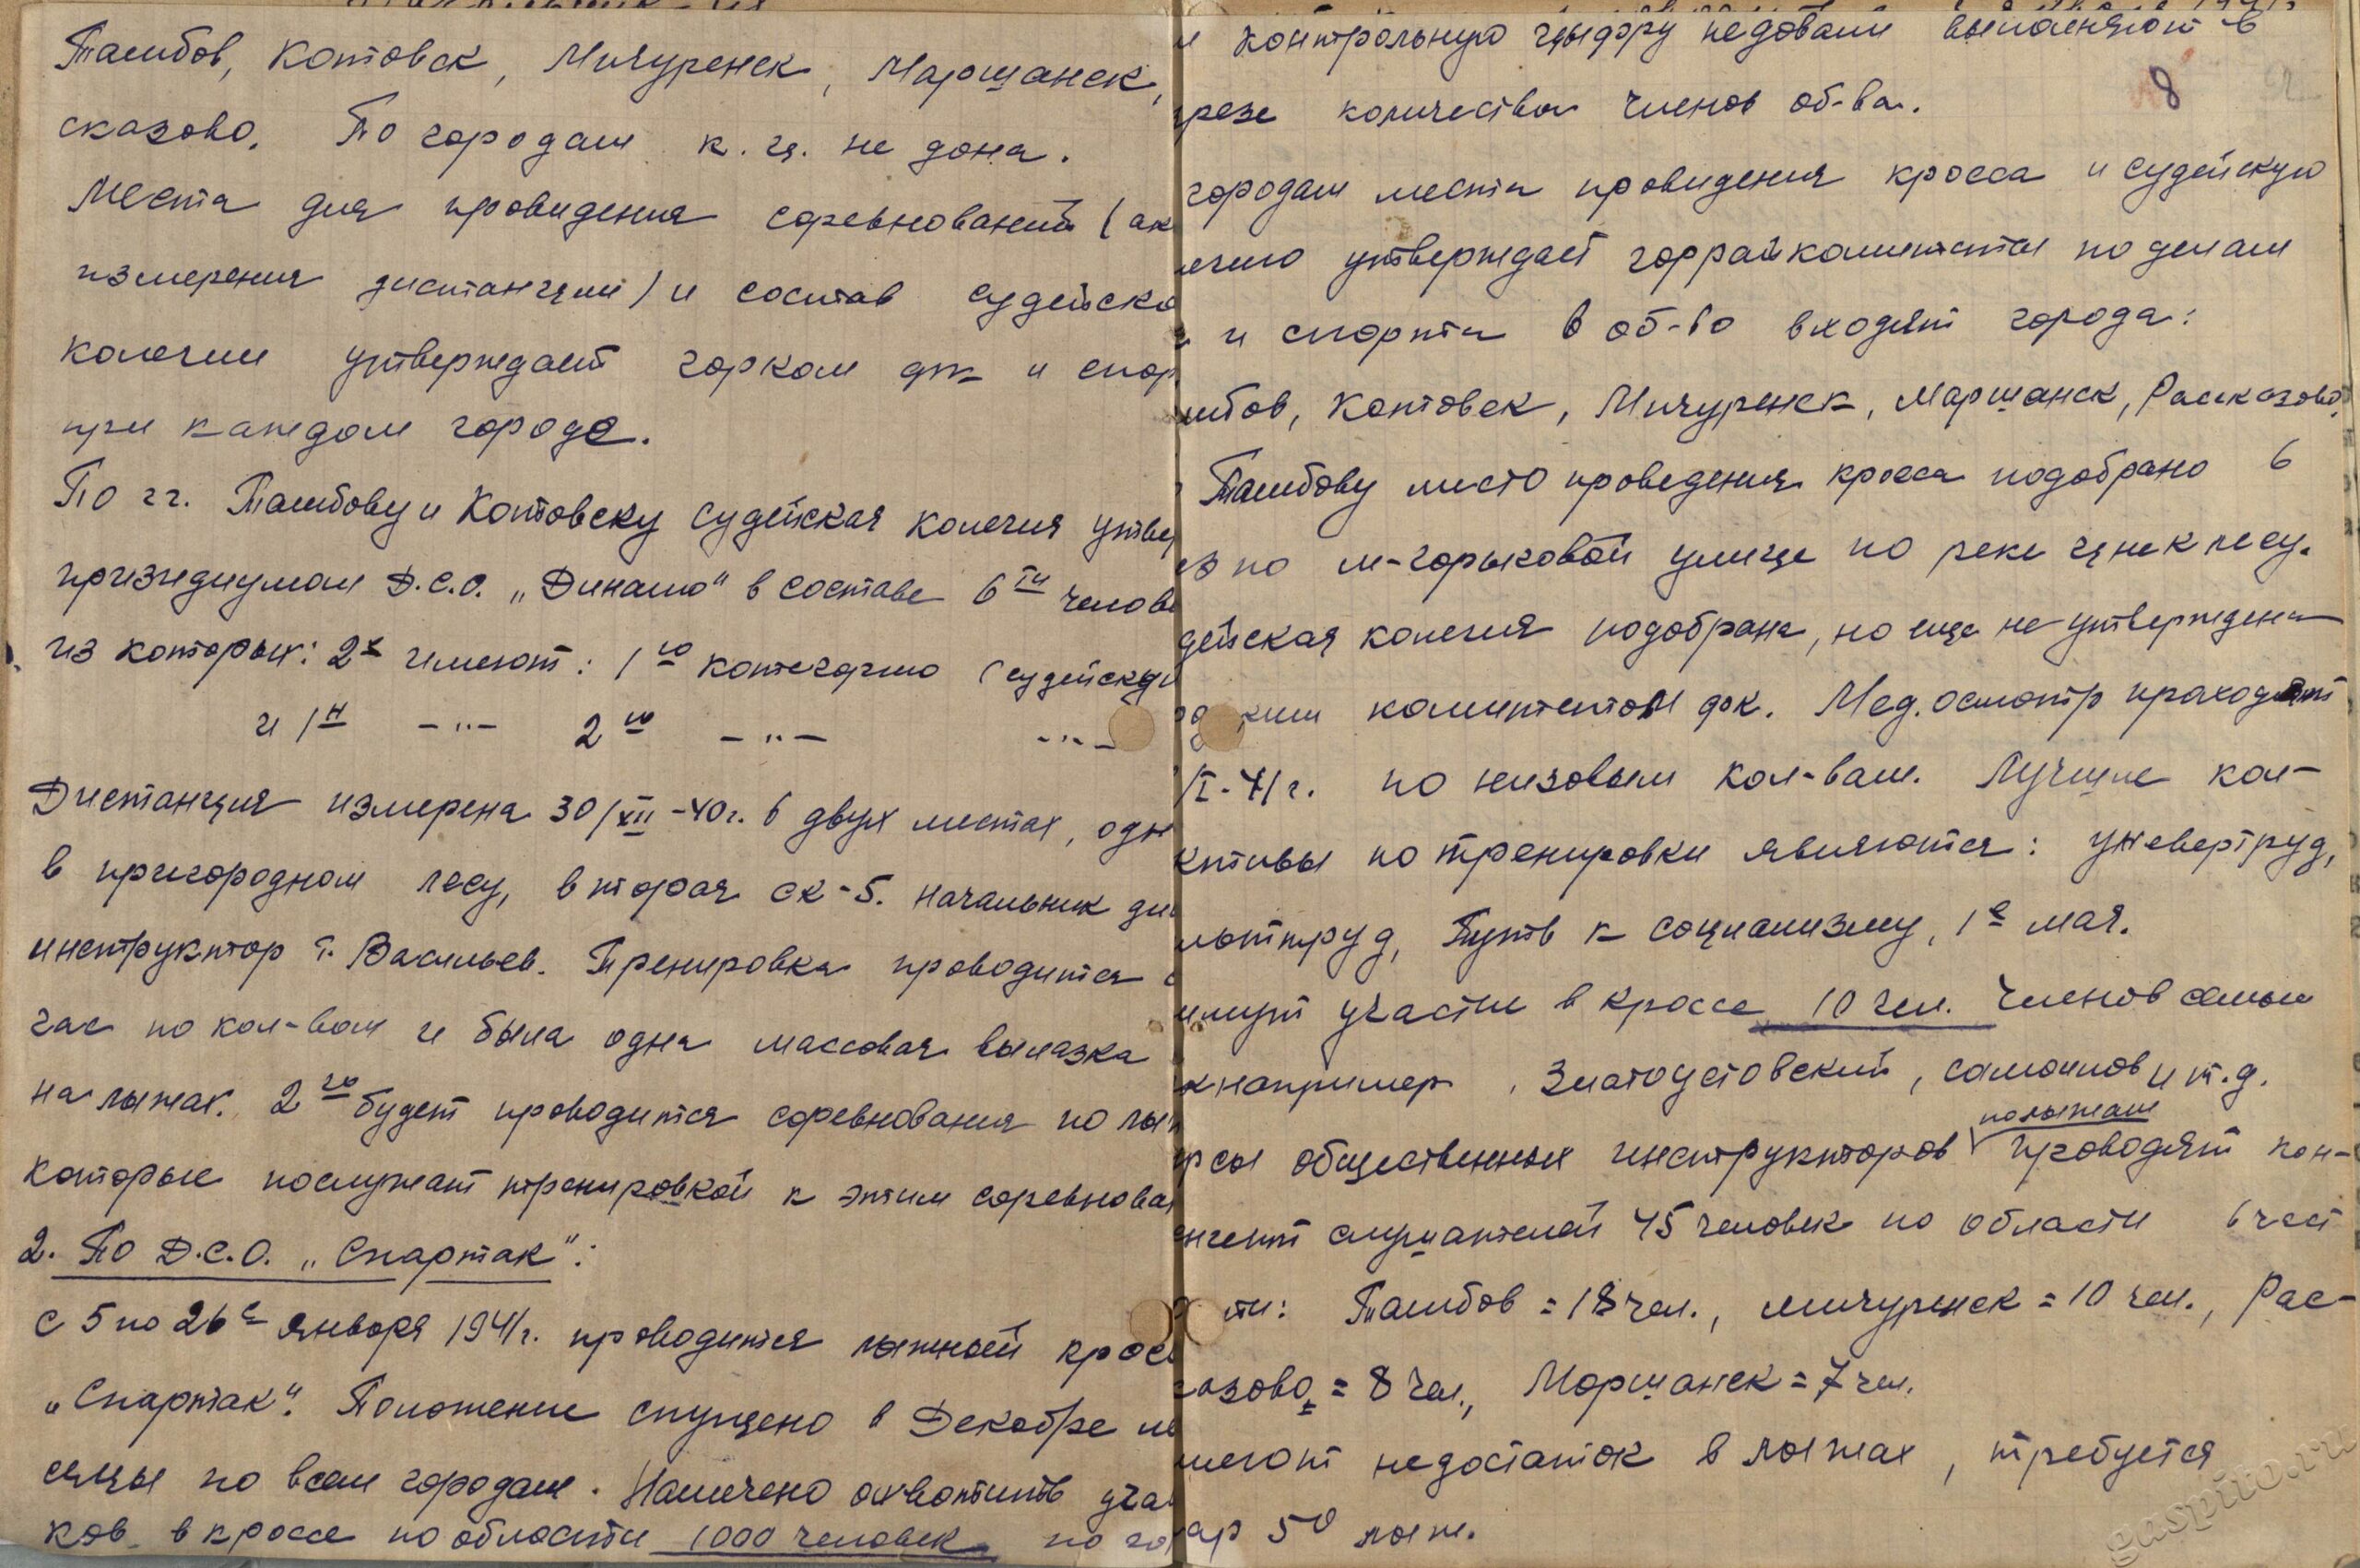 Тамбов, Котовск, Мичуренск, Маршанск,
сказово. По городам к.ц. не дона.
Места для провидения соревнований (ак
измерения дистанции) и состав судейско
колегии утверждает горком фк и спор
при каждом городе.
По гг. Тамбову и Котовску судейская колегия утвер
призидиумом Д.С.О. „Динамо" в составе 6ти челове
из которых: 2х имеют: 1ю котегорию (судейскую
и 1н -"- 2ю -"- -"-
Дистанция измерена 30/XII-40г. в двух местах, одн
в пригородном лесу, вторая ск-5. начальник ди
инструктор т. Васильев. Тренировка проводится
час по кол-вам и была одна массовая вылазка
на лыжах. 2го будет проводится соревнования по лы
которые послужат тренировкой к этим соревнован
2. По Д.С.О. „Спартак":
с 5 по 26е января 1941г. проводится лыжный крос
„Спартак". Положение спущено в Декабре м
сяцы по всем городам. Намечено охватить уча
ков в кроссе по области 1000 человек по го
и контрольную цыфру недовали выполняют в
резе количества членов об-ва.
8
городам места провидения кросса и судейскую
легию утверждает горрайкомитеты по делам
и спорта в об-во входят города:
мбов, Котовск, Мичуренск, Маршанск, Рассказово,
Тамбову место проведения кросса подобрано в
ез по м-горьковой улице по реке цнек лесу.
дейская колегия подобрана, но еще не утверждена
ким комитетом фк. Мед. осмотр проходят
/I-41г. по низовым кол-вам. Лучшие кол-
ктивы по тренировки являются: универтруд,
льттруд, Путь к социализму, 1е мая.
имут участие в кроссе 10 чел. членов семьи
к например, Златоустовский, самоилов и т.д.
по лыжам
рсы общественных инструкторов проводят кон-
ингент слушателей 45 человек по области в част
ти: Тамбов = 18 чел., мичуренск = 10 чел., Рас-
казово = 8 чел., Моршанск = 7 чел.
меют недостаток в лыжах, требуется
ар 50 лыж.
gaspito.ru